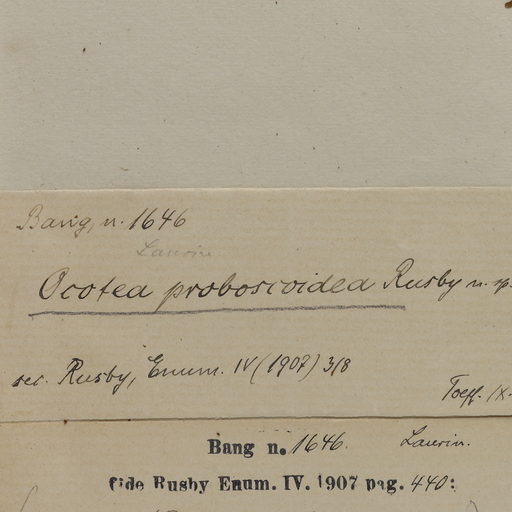 Bang, n. 1646
Laurin
Ocotea proboscoidea Rusby n. sp.
sec. Rusby, Enum. IV (1907) 318
Toepff. IX.
Bang n. 1646. Laurin.
fide Rusby Enum. IV. 1907 pag. 440: